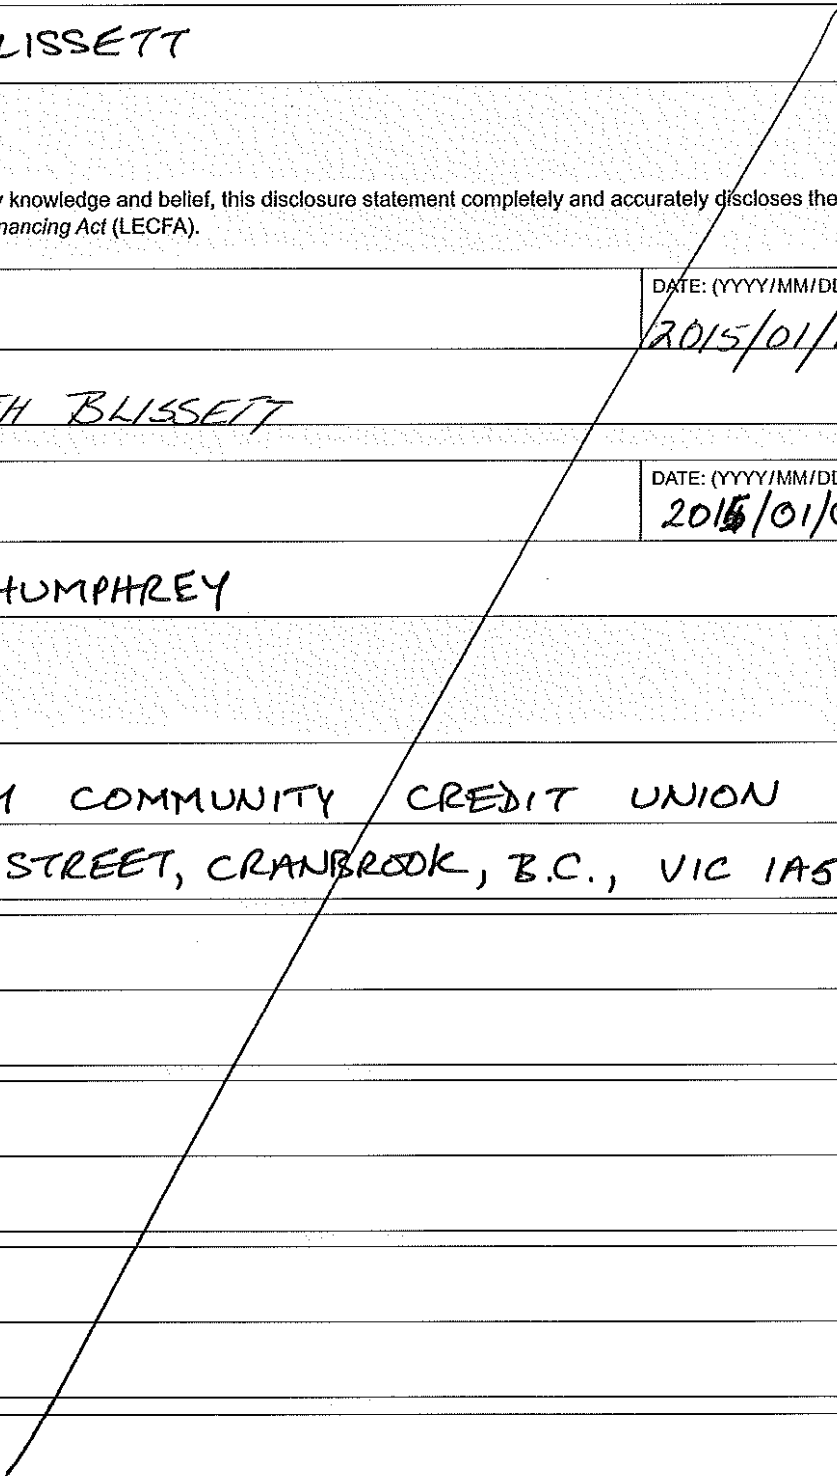 LISSETT
knowledge and belief, this disclosure statement completely and accurately discloses the
nancing Act (LECFA).
DATE: (YYYY/MM/DD
2015/01/
TH BLISSETT
DATE: (YYYY/MM/DD
2015/01/0
HUMPHREY
COMMUNITY CREDIT UNION
STREET, CRANBROOK, B.C., V1C 1A5